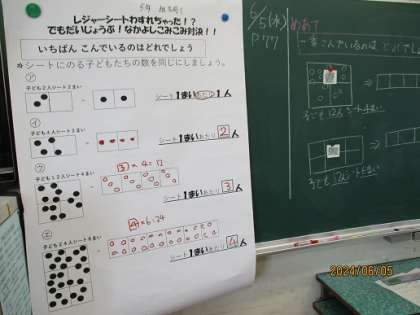 レジャーシートわすれちゃった！？
でもだいじょうぶ！なかよしこみこみ対決！！
いちばん こんでいるのはどれでしょう
⇒シートにのる子どもたちの数を同じにしましょう。
㋐
子ども2人シート2まい
シート1まいあたり1人
㋑
子ども4人シート2まい
シート1まいあたり2人
㋒
子ども12人シート4まい
③×4=12
シート1まいあたり3人
㋓
子ども24人シート6まい
④×6=24
シート1まいあたり4人
6/5(水)
P77
めあて
一番こんでいるのは どれで
子ども12人シート4まい
2024/06/05